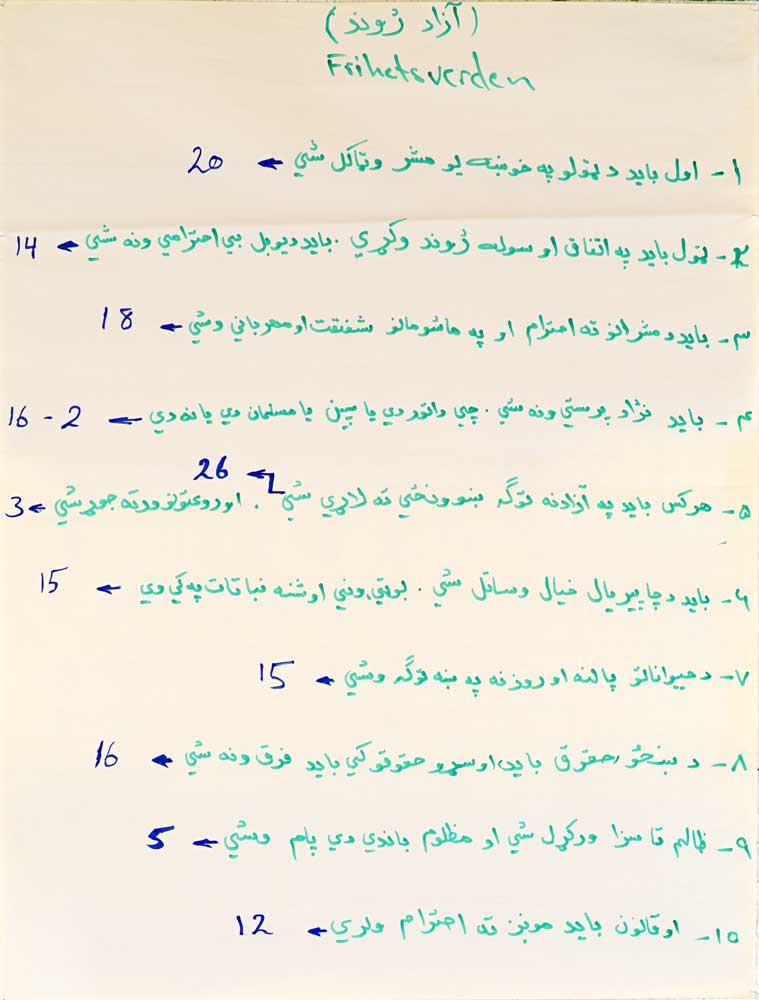 (آزاد ژوند)
Frihetsverden
۱- اول باید د ټولو په خوښه یو مشر وټاکل شي ← 20
۲- ټول باید په اتفاق او سوله ژوند وکړي. باید د یو بل بې احترامي ونه شي ← 14
۳- باید د مشرانو ته احترام او په ماشومانو شفقت او مهرباني وشي ← 18
۴- باید نژاد پرستي ونه شي. چې وا تور دي یا سپین یا مسلمان دي یا نه دي ← 2 - 16
26 ←
۵- هرکس باید په آزادنه توګه ښوونځي ته لاړي شي. او روغتونو ورته جوړ شي ← 3
۶- باید د چاپیریال خیال وساتل شي. بوټي، ونې او شنه نباتات په کې وي ← 15
۷- د حیواناتو پالنه او روزنه په ښه توګه وشي ← 15
۸- د ښځو حقوق باید، او سړو حقوقو کې باید فرق ونه شي ← 16
۹- ظالم ته سزا ورکړل شي او مظلوم باندې دي پام وشي ← 5
۱۰- او قانون باید مونږ ته احترام ولري ← 12